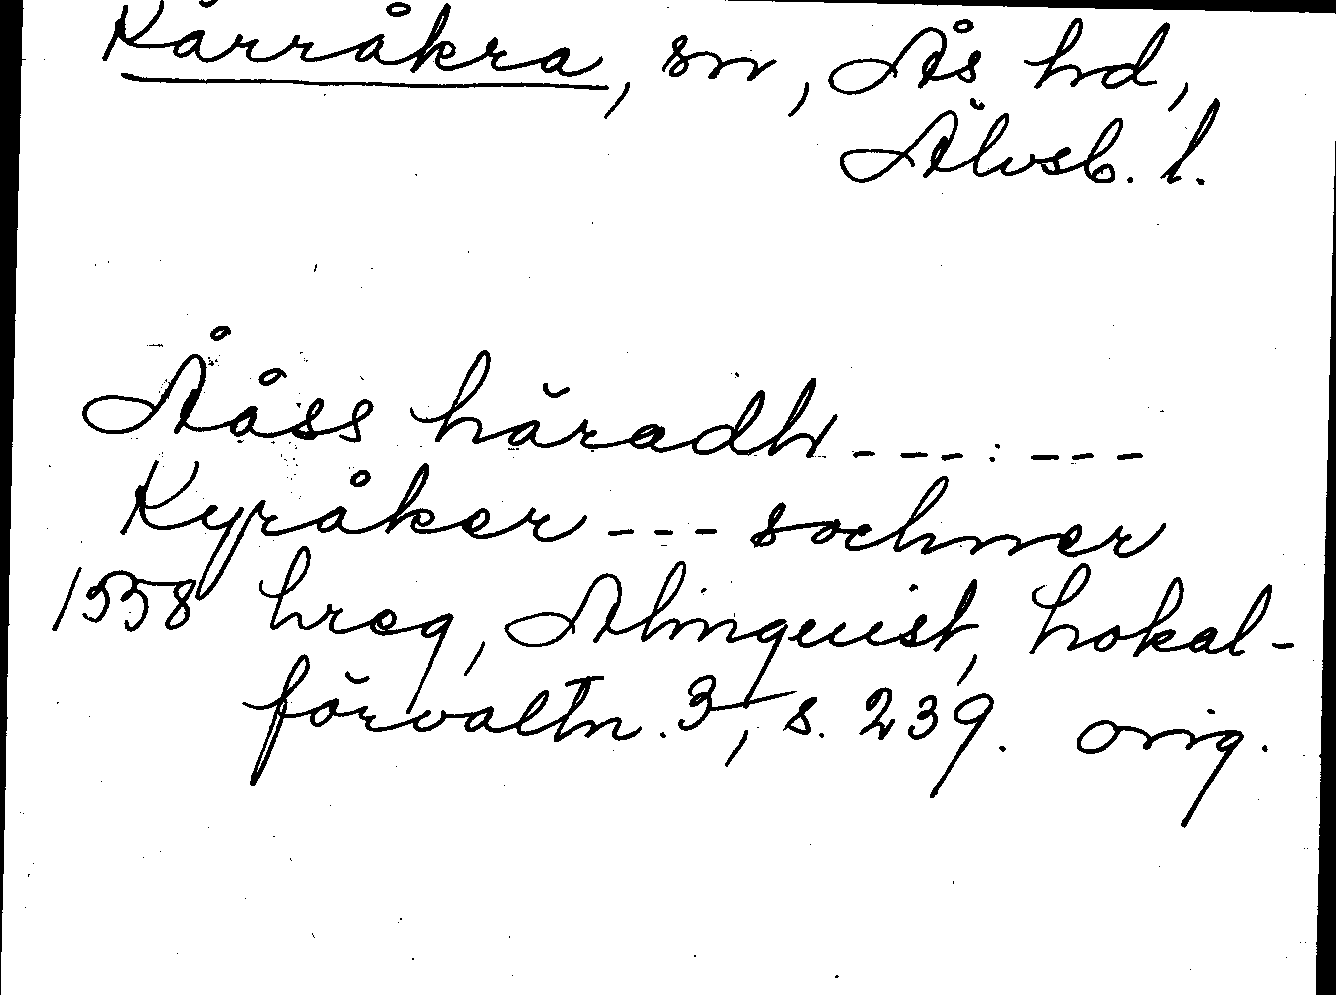 Kärråkra, sn, Ås hd,
Älvsb. l.
Ååss häradh --- : ---
Kyråker --- sochner
1558 hreg, Almquist, Lokal-
förvaltn. 3, s. 239. orig.